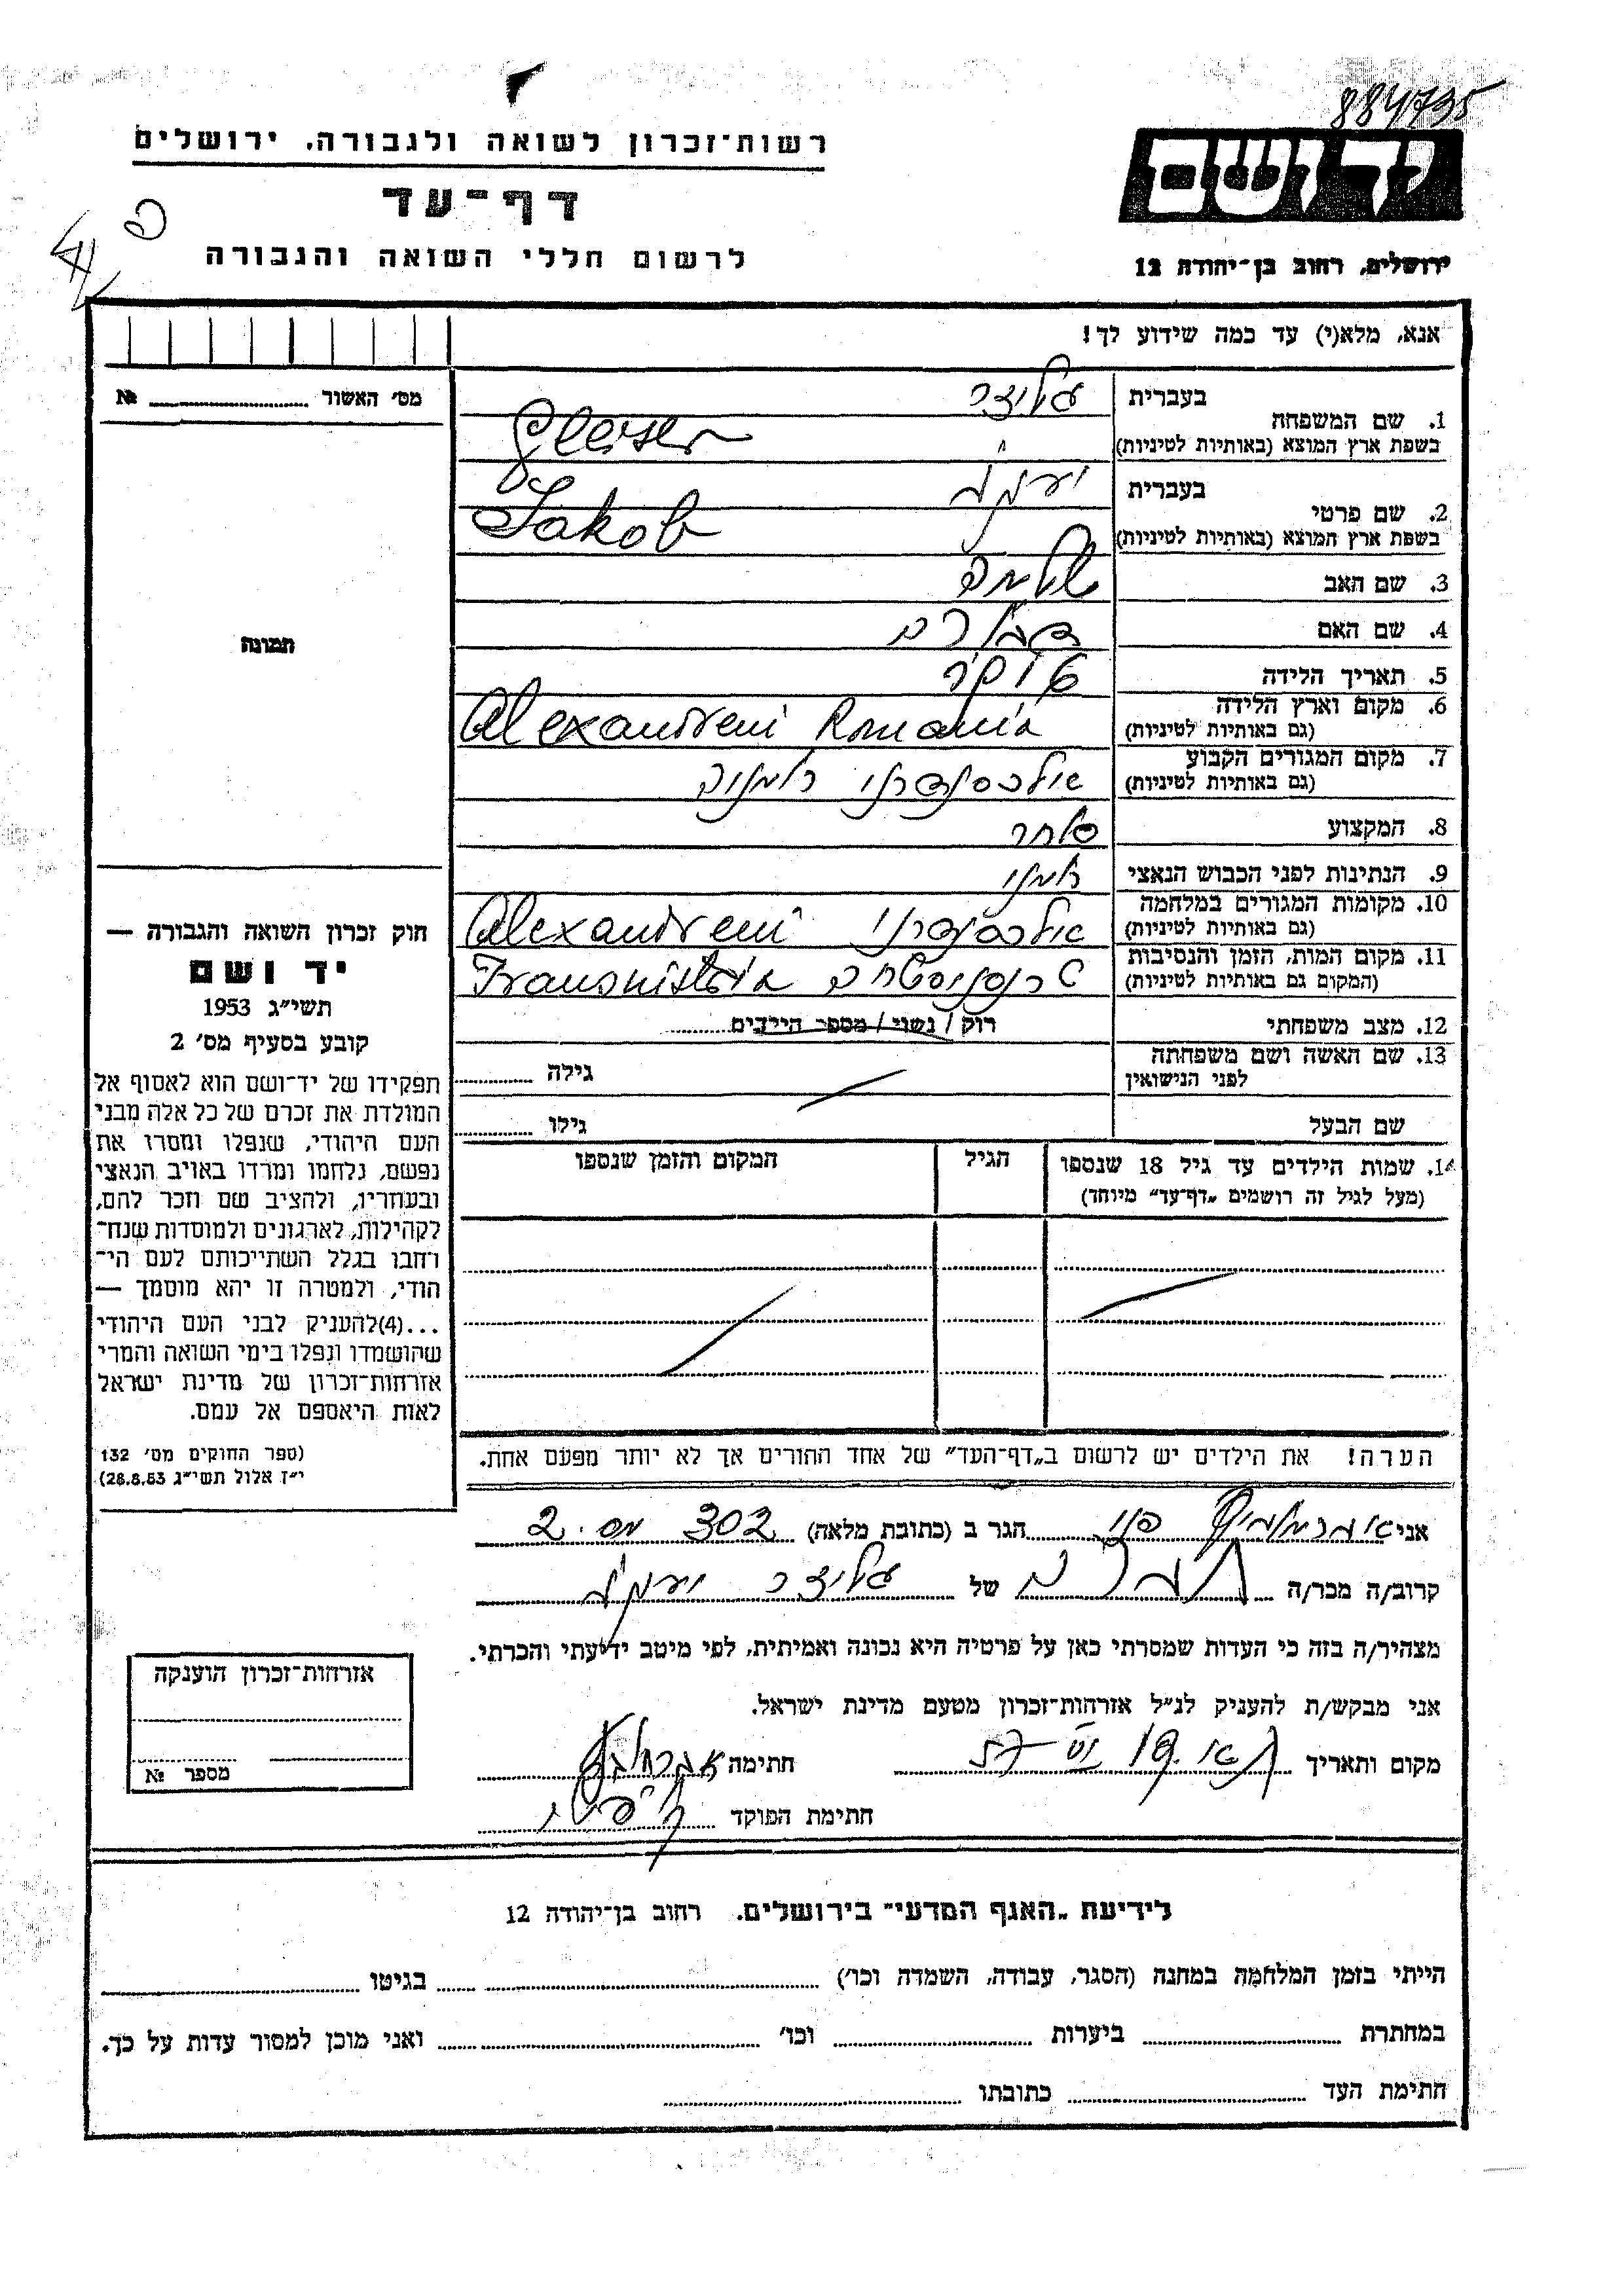 884795
רשות־זכרון לשואה ולגבורה, ירושלים
דף־עד
לרשום חללי השואה והגבורה
יד ושם
ירושלים, רחוב בן־יהודה 12
אנא, מלא(י) עד כמה שידוע לך!
מס׳ האשור № 
1. שם המשפחה
בעברית
בשפת ארץ המוצא (באותיות לטיניות)
Gleiser
2. שם פרטי
בעברית יעקב
בשפת ארץ המוצא (באותיות לטיניות) Jakob
3. שם האב שלמה
4. שם האם דבורה
5. תאריך הלידה
6. מקום וארץ הלידה
(גם באותיות לטיניות) Alexandreni Romania
7. מקום המגורים הקבוע
(גם באותיות לטיניות) אולכסנדרני רומניה
8. המקצוע סוחר
9. הנתינות לפני הכבוש הנאצי רומני
10. מקומות המגורים במלחמה
(גם באותיות לטיניות) אולכסנדרני Alexandreni
11. מקום המות, הזמן והנסיבות
(המקום גם באותיות לטיניות) טרנסניסטריה Transnistria
12. מצב משפחתי רוק / נשוי / מספר הילדים
13. שם האשה ושם משפחתה
לפני הנישואין
גילה
שם הבעל גילו
14. שמות הילדים עד גיל 18 שנספו
(מעל לגיל זה רושמים „דף־עד״ מיוחד)
הגיל
המקום והזמן שנספו
תמונה
חוק זכרון השואה והגבורה —
יד ושם
תשי״ג 1953
קובע בסעיף מס׳ 2
תפקידו של יד־ושם הוא לאסוף אל
המולדת את זכרם של כל אלה מבני
העם היהודי, שנפלו ומסרו את
נפשם, נלחמו ומרדו באויב הנאצי
ובעוזריו, ולהציב שם וזכר להם,
לקהילות, לארגונים ולמוסדות שנח־
רבו בגלל השתייכותם לעם הי־
הודי, ולמטרה זו יהא מוסמך —
...(4)להעניק לבני העם היהודי
שהושמדו ונפלו בימי השואה והמרי
אזרחות־זכרון של מדינת ישראל
לאות היאספם אל עמם.
(ספר החוקים מס׳ 132
י״ז אלול תשי״ג 28.8.53)
הערה! את הילדים יש לרשום ב„דף־העד״ של אחד ההורים אך לא יותר מפעם אחת.
אני אברמוביץ פני הגר ב (כתובת מלאה) 302 מס. 2
קרוב/ה מכר/ה חברה של יעקב
מצהיר/ה בזה כי העדות שמסרתי כאן על פרטיה היא נכונה ואמיתית, לפי מיטב ידיעתי והכרתי.
אני מבקש/ת להעניק לנ״ל אזרחות־זכרון מטעם מדינת ישראל.
מקום ותאריך חתימה
חתימת הפוקד
אזרחות־זכרון הוענקה
מספר №
לידיעת „האגף המדעי״ בירושלים, רחוב בן־יהודה 12
הייתי בזמן המלחמה במחנה (הסגר, עבודה, השמדה וכו׳) בגיטו
במחתרת ביערות וכו׳ ואני מוכן למסור עדות על כך.
חתימת העד כתובתו